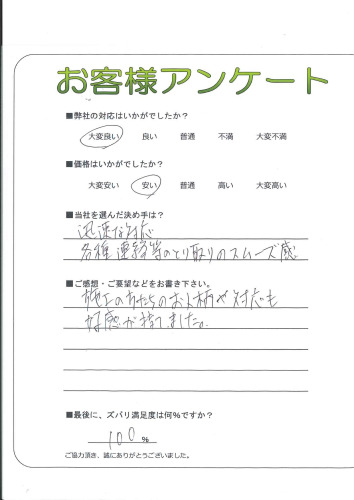 お客様アンケート
■弊社の対応はいかがでしたか?
大変良い 良い 普通 不満 大変不満
■価格はいかがでしたか?
大変安い 安い 普通 高い 大変高い
■当社を選んだ決め手は?
迅速な対応
各種連絡等のとり取りのスムーズ感
■ご感想・ご要望などをお書き下さい。
施工の方たちのお人柄や対応も
好感が持てました。
■最後に、ズバリ満足度は何%ですか?
100 %
ご協力頂き、誠にありがとうございました。